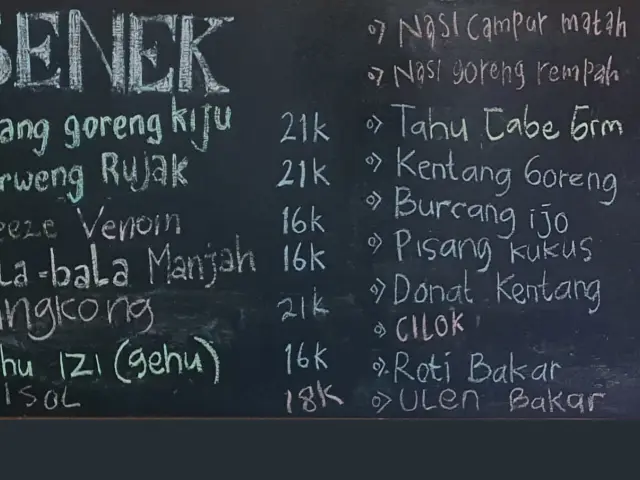 SENEK
ang goreng kiju 21k
rweng Rujak 21k
eeze Venom 16k
la-bala Manjah 16k
ngkong 21k
hu IZI (gehu) 16k
ISOL 18k
Nasi Campur matah
Nasi goreng rempah
Tahu Cabe Grm
Kentang Goreng
Burcang ijo
Pisang kukus
Donat Kentang
CILOK
Roti Bakar
ULen Bakar